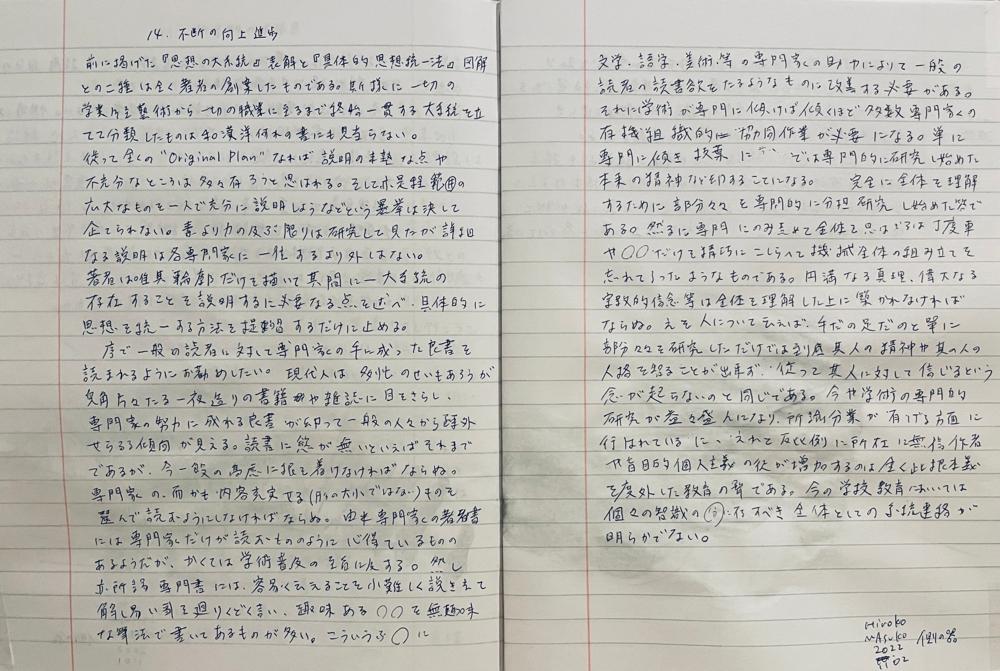 14. 不断の向上進歩
前に掲げた『思想の大系統』表解と『具体的思想統一法』図解
との二種は全く著者の創案したものである。斯様に一切の
学業乃至藝術から一切の職業に至るまで終始一貫する大系統を立
てて分類したものは和漢洋何れの書にも見当らない。
従って全くの "Original Plan" なれば説明の未熟な点や
不充分なところは多々存ろうと思はれる。そして亦是程範囲の
広大なものを一人で充分に説明しようなどという暴挙は決して
企てられない。書より力の及ぶ限りは研究して見たが詳細
なる説明は各専門家に一任するより外しはない。
著者は唯其輪廓だけを描いて其間に一大系統の
存在することを説明するに必要なる点を述べ、具体的に
思想を統一する方法を提唱するだけに止める。
序で一般の読者に対して専門家の手に成った良書を
読まれるようにお勧めしたい。現代人は多忙のせいもあろうが
兎角片々たる一夜造りの書籍や雑誌に目をさらし、
専門家の努力に成れる良書が却って一般の人々から疎外
せらるる傾向が見える。読書に慾が無いといえばそれまで
であるが、今一段の高處に振を着けなければならぬ。
専門家の、而かも内容充実せる(形の大小ではない)ものを
選んで読むようにしなければならぬ。由来専門家の著書
には専門家だけが読むもののように心得ているものの
あるようだが、かくては学術普及の主旨に反する。然し
亦所謂専門書には、容易く云えることを小難しく説きまて
解し易い事を廻りくどく言い、趣味ある〇〇を無趣味
な筆法で書いてあるものが多い。こういうぶ〇に
文学、語学、美術、等の専門家の助力によって一般の
読者の読書欲をたるようなものに改善する必要がある。
それに学術が専門に傾けば傾くほど多数専門家の
有機組織的に協同作業が必要になる。単に
専門に傾き 技葉に では専門的に研究し始めた
本来の精神など印することになる。 完全に全体を理解
するために部分々々を専門的に分担研究し始めた筈で
ある。然るに専門にのみ止めて全体を思はざるは丁度車
や〇〇だけを精巧にこしらへて機械全体の組み立てを
忘れてしったようなものである。円満なる真理、偉大なる
宗教的信念等は全体を理解した上に築かれなければ
ならぬ。之を人について云えば、手だの足だのと単に
部分々々を研究しただけでは到底其人の精神や其の人の
人格を知ることが出来ず、従って其人に対して信じるという
念が起らないのと同じである。今や学術の専門的
研究が益々盛んになり、所謂分業が有ける方面に
行はれているに、それと反比例に所在に無信仰者
や盲目的個人主義の徒が増加するのは全く此根本義
を度外した教育の脊である。今の学校教育においては
個々の智識の に存すべき全体としての系統連絡が
明らかでない。
Hiroko
Masuko
2022
02